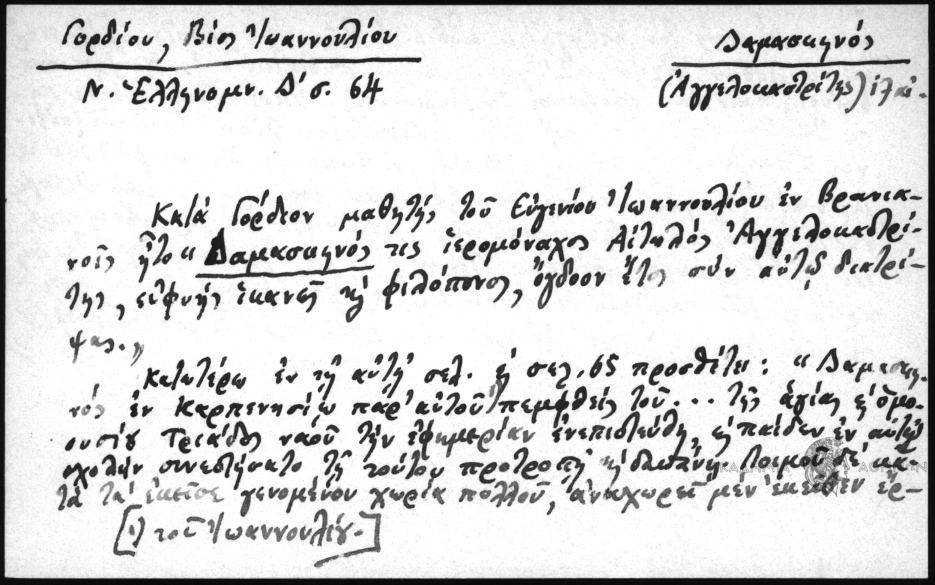 Γορδίου, Βίος Ἰωαννουλίου
Δαμασκηνός
Ν. Ἑλληνομν. Δ΄ σ. 64
(Ἀγγελοκαστρίτης)
Κατά Γόρδιον μαθητής τοῦ Εὐγενίου Ἰωαννουλίου ἐν Βρανια-
νοῖς ἦτο "Δαμασκηνός τις ἱερομόναχος Αἰτωλός Ἀγγελοκαστρί-
της, εὐφυής ἱκανῶς κ̀ φιλόπονος, ὄγδοον ἔτος σύν αὐτῷ διατρί-
ψας."
Κατωτέρω ἐν τῇ αὐτῇ σελ. κ̀ σελ. 65 προσθέτει: "Δαμασκη-
νός ἐν Καρπενησίῳ παρ' αὐτοῦ¹⁾ πεμφθείς τοῦ... τῆς ἁγίας κ̀ ὁμο-
ουσίου Τριάδος ναοῦ τήν ἐφημερίαν ἐνεπιστεύθη, κ̀ παίδων ἐν αὐτῷ
σχολήν συνεστήσατο τῇ τούτου προτροπῇ κ̀ δαπάνῃ. Λοιμοῦ δέ κα-
τά τά ἐκεῖσε γενομένου χωρία πολλοῦ, ἀναχωρεῖ μέν ἐκεῖθεν ἐρ-
[¹⁾ τοῦ Ἰωαννουλίου.]